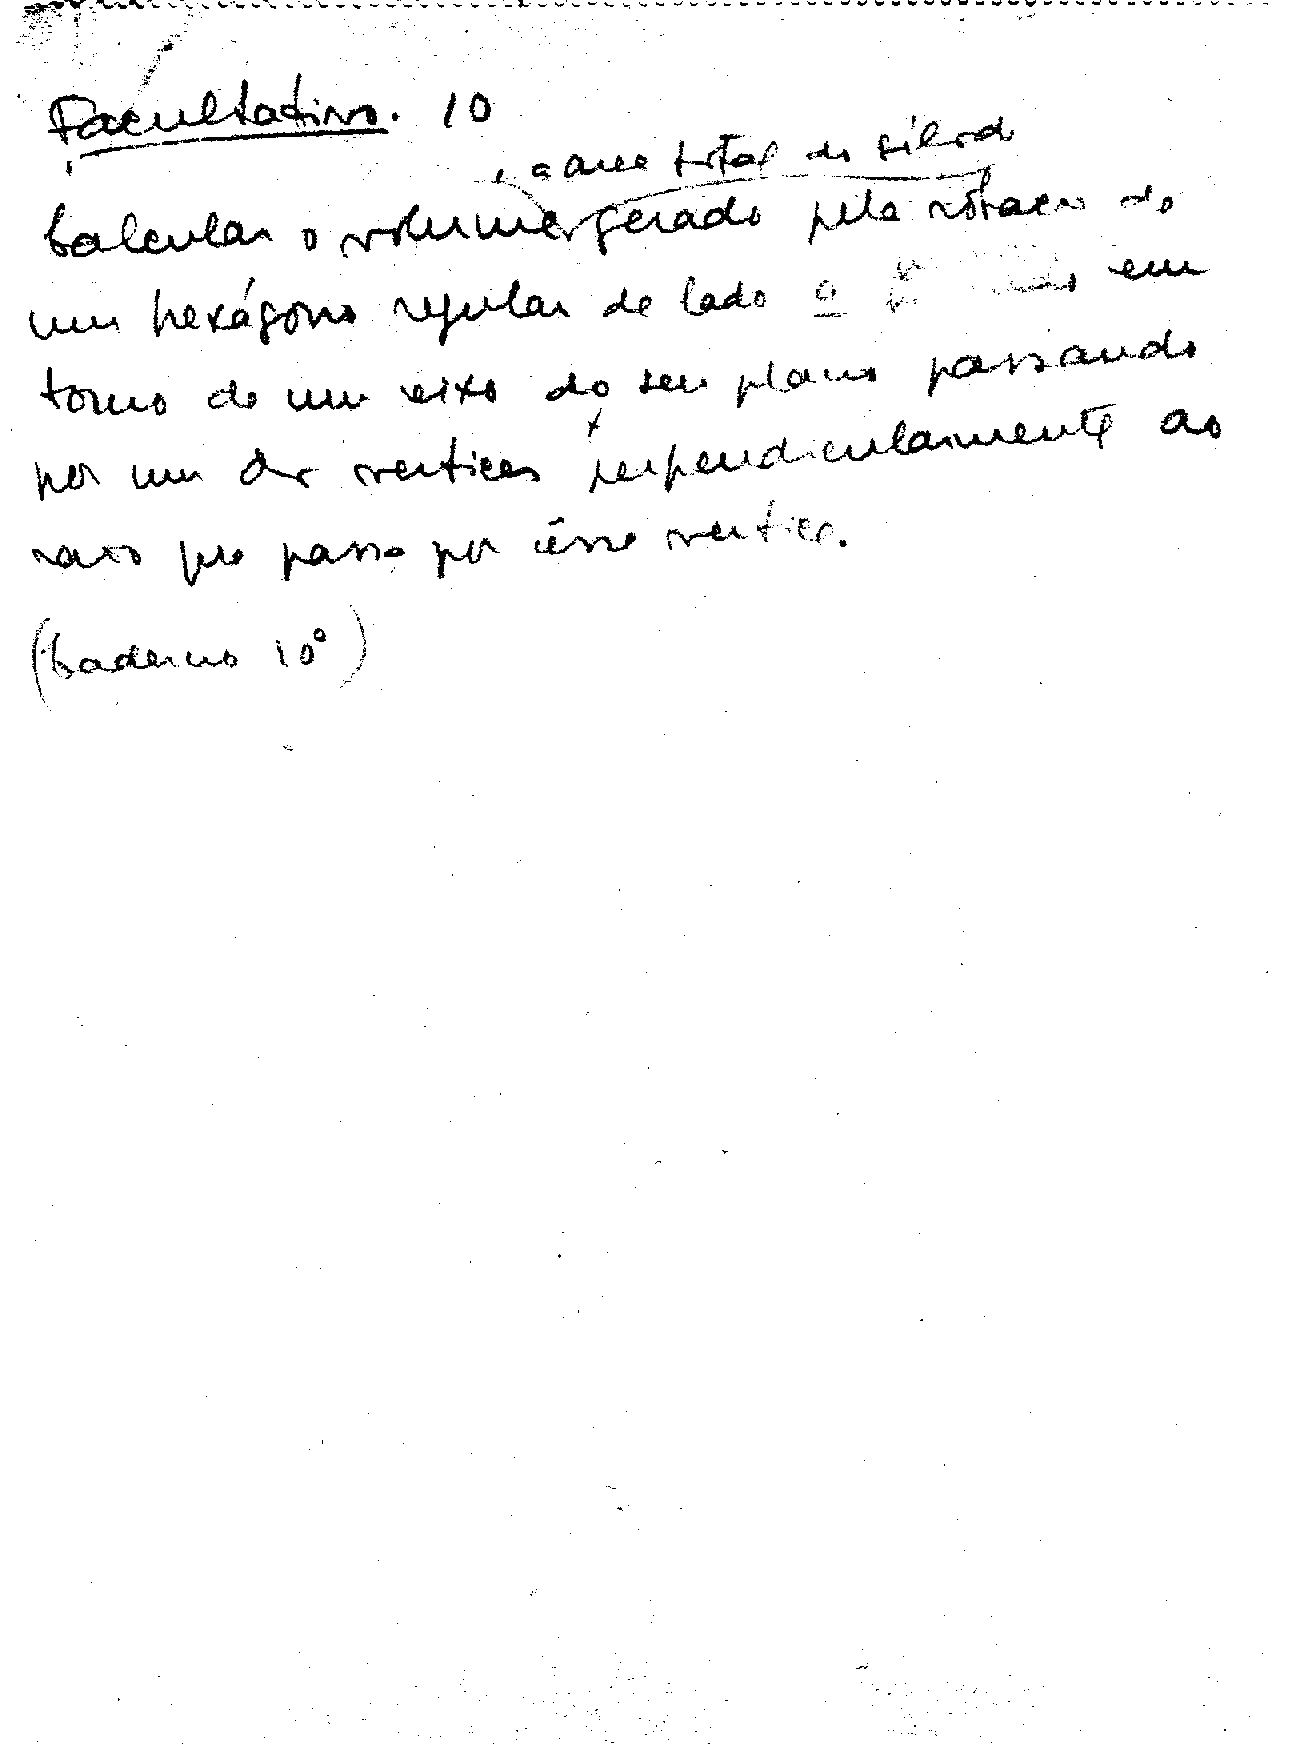 Facultativo. 10
, a area total do sólido
Calcular o volume gerado pela rotação de
um hexágono regular de lado a em
torno de um eixo do seu plano passando
por um dos vertices perpendicularmente ao
raio que passa por êsse vertice.
(Caderno 10º)